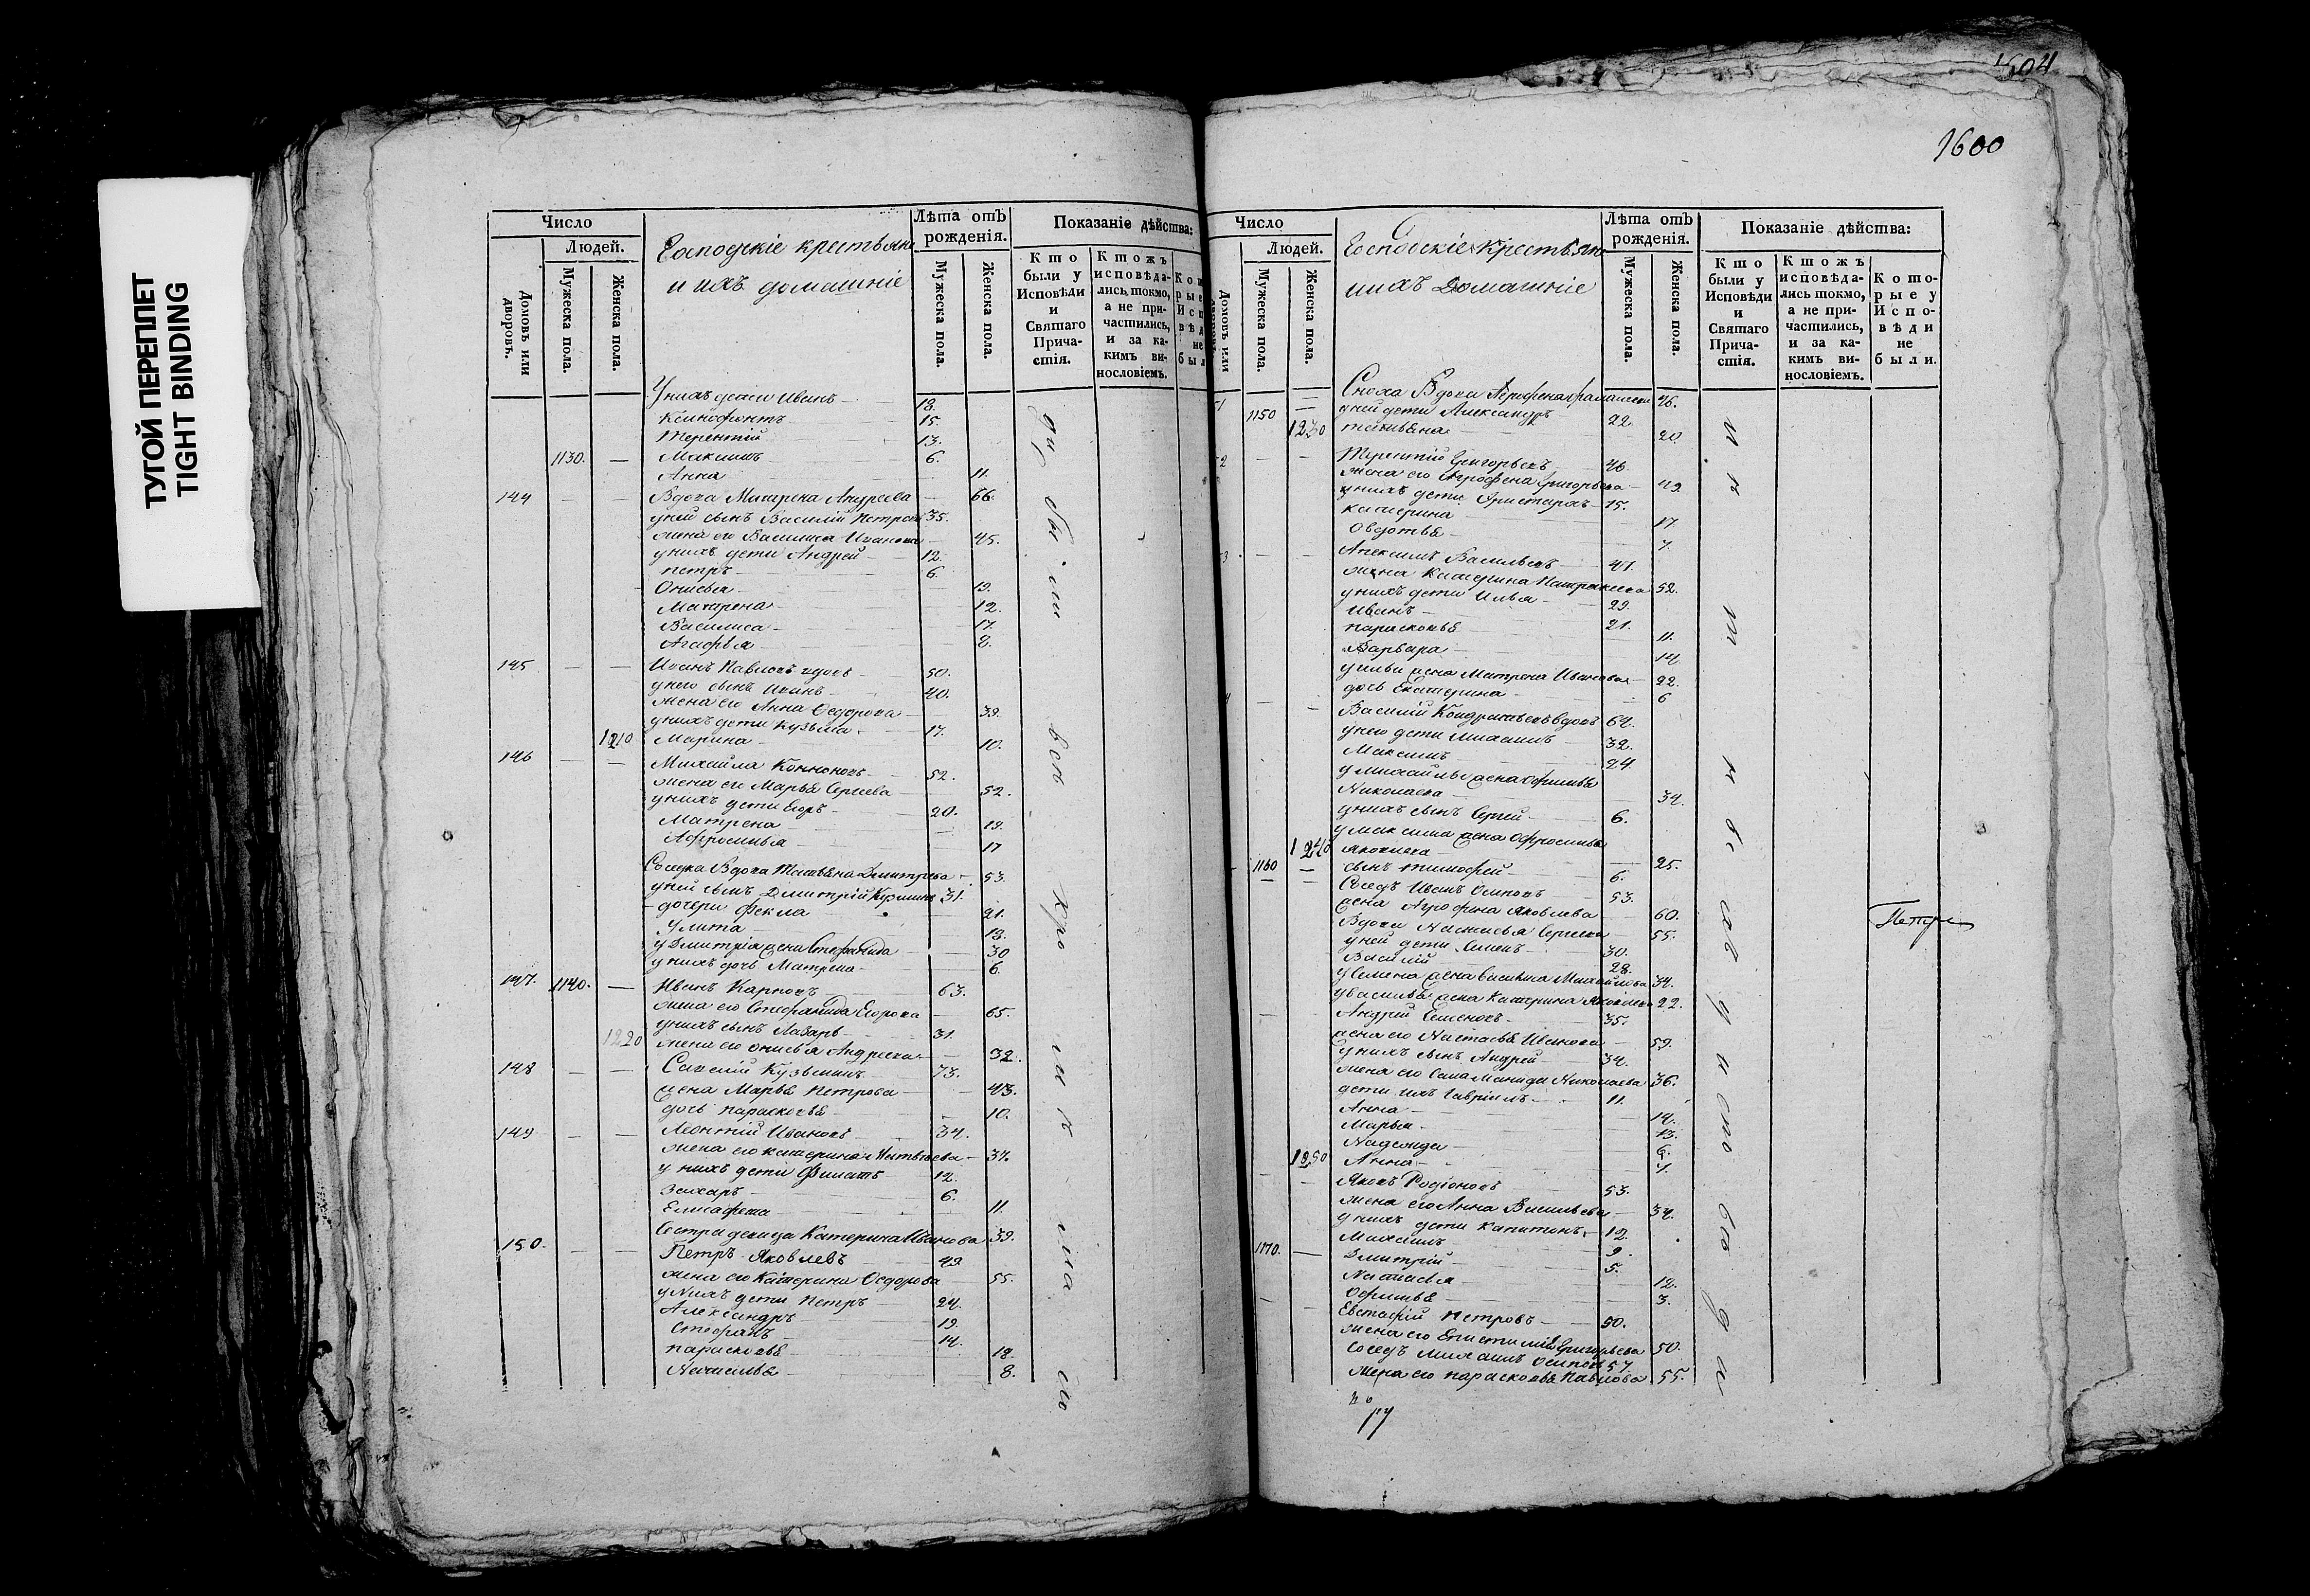 ТУГОЙ ПЕРЕПЛЕТ
TIGHT BINDING
Число
Людей.
Домовъ или дворовъ.
Мужеска пола.
Женска пола.
Господскіе крестьяне
и ихъ домашніе
Лѣта отъ рожденія.
Мужеска пола.
Женска пола.
Показаніе дѣйства:
Кто были у Исповѣди и Святаго Причастія.
Ктожъ исповѣдались токмо, а не причастились, и за какимъ винословіемъ.
У нихъ дети Иванъ 18.
Ксинофонтъ 15.
Терентій 13.
1130. Максимъ 6.
Анна 11.
144 Вдова Макрена Андреева 66.
у ней сынъ Василій Петровъ 35.
жена его Василиса Иванова 45.
у нихъ дети Андрей 12.
Петръ 6.
Онисья 19.
Макрена 12.
Василиса 17.
Агафья 8.
145 Иванъ Павловъ вдовъ 50.
у него сынъ Иванъ 40.
жена его Анна Федорова 39.
у нихъ дети Кузьма 17.
1210 Марина 10.
146 Михайла Кононовъ 52.
жена его Марья Сергеева 52.
у нихъ дети Егоръ 20.
Матрена 19.
Афросинья 17
Соседка Вдова Татьяна Дмитрева 53.
у ней сынъ Дмитрій Кузминъ 31.
дочери Фекла 21.
Улита 13.
у Дмитрія жена Стефанида 30
у нихъ дочь Матрена 6.
147. 1140. Иванъ Карповъ 63.
жена его Стефанида Егорова 65.
у нихъ сынъ Лазарь 31.
1220 жена его Онисья Андреева 32.
148 Савелій Кузьминъ 73.
жена Марья Петрова 43.
дочь Парасковья 10.
149 Леонтій Ивановъ 34.
жена его Катерина Матвеева 37.
у нихъ дети Филатъ 12.
Захаръ 6.
Елисафета 11.
Сестра девица Катерина Иванова 39.
150. Петръ Яковлевъ 49
жена его Катерина Федорова 55.
у нихъ дети Петръ 24.
Александръ 19.
Стефанъ 14.
Парасковья 18.
Настасья 8.
1600
Число
Людей.
Домовъ или
Мужеска пола.
Женска пола.
Господскіе крестьяне
и ихъ домашніе
Лѣта отъ рожденія.
Мужеска пола.
Женска пола.
Показаніе дѣйства:
Кто были у Исповѣди и Святаго Причастія.
Ктожъ исповѣдались токмо, а не причастились, и за какимъ винословіемъ.
Которые у Исповѣди не были.
Сноха Вдова Агрофена 46.
1150 у ней дети Александръ 22.
1230 Татьяна 20
Терентій Григорьевъ 46.
жена его Агрофена Григорьева 49.
у нихъ дети Аристархъ 15.
Катерина 17.
Овдотья 7.
Алексей Васильевъ 47.
жена Катерина 52.
у нихъ дети Илья 29.
Иванъ 21.
Парасковья 11.
Варвара 14.
у Ильи жена Матрена Иванова 22.
дочь Екатерина 6
Василій Кондратьевъ вдовъ 64.
у него дети Михаилъ 32.
Максимъ 24
у Михайлы жена Офимья
Николаева 34.
у нихъ сынъ Сергей 6.
у Максима жена Офросинья
1240 Яковлева 25.
1160 сынъ Тимофей 6.
Соседъ Иванъ 53.
жена Агрофена Яковлева 60.
Вдова Настасья Сергеева 55.
у ней дети Семенъ 30.
Василій 28.
у Семена жена Василиса Михайлова 34.
у Василья жена Катерина Яковлева 22.
Андрей Семеновъ 55.
жена его Настасья Иванова 59.
у нихъ сынъ Андрей 34.
жена его Саламанида Николаева 36.
дети ихъ Гавріилъ 11.
Анна 14.
Марья 13.
Надежда 6.
1250 Анна 4.
Яковъ Родіоновъ 53.
жена его Анна Васильева 34.
у нихъ дети Капитонъ 12.
Михаилъ 9.
1170. Дмитрій 5.
Настасья 12.
Офимья 3.
Евстафій Петровъ 50.
жена его Епистимія Григорьева 50.
Соседъ Михаилъ Осиповъ 57.
жена его Парасковья Павлова 55.